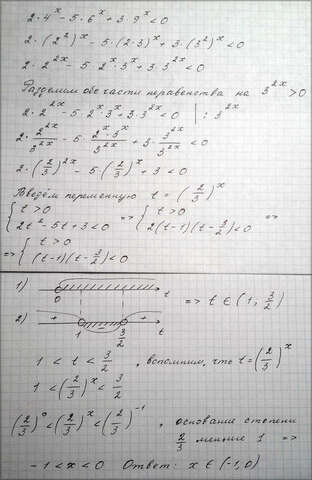 2·4^x - 5·6^x + 3·9^x < 0
2·(2²)^x - 5·(2·3)^x + 3·(3²)^x < 0
2·2^{2x} - 5·2^x·3^x + 3·3^{2x} < 0
Разделим обе части неравенства на 3^{2x} > 0
2·2^{2x} - 5·2^x·3^x + 3·3^{2x} < 0 | : 3^{2x}
2·2^{2x}/3^{2x} - 5·2^x·3^x/3^{2x} + 3·3^{2x}/3^{2x} < 0
2·(2/3)^{2x} - 5·(2/3)^x + 3 < 0
Введём переменную t = (2/3)^x
{ t > 0 => { t > 0 =>
{ 2t² - 5t + 3 < 0 { 2(t-1)(t-3/2) < 0
=> { t > 0
{ (t-1)(t-3/2) < 0
1) 0 t => t ∈ (1, 3/2)
2) + - + t
1 3/2
1 < t < 3/2, вспомним, что t = (2/3)^x
1 < (2/3)^x < 3/2
(2/3)^0 < (2/3)^x < (2/3)^{-1}, основание степени
2/3 меньше 1 =>
-1 < x < 0 Ответ: x ∈ (-1, 0)